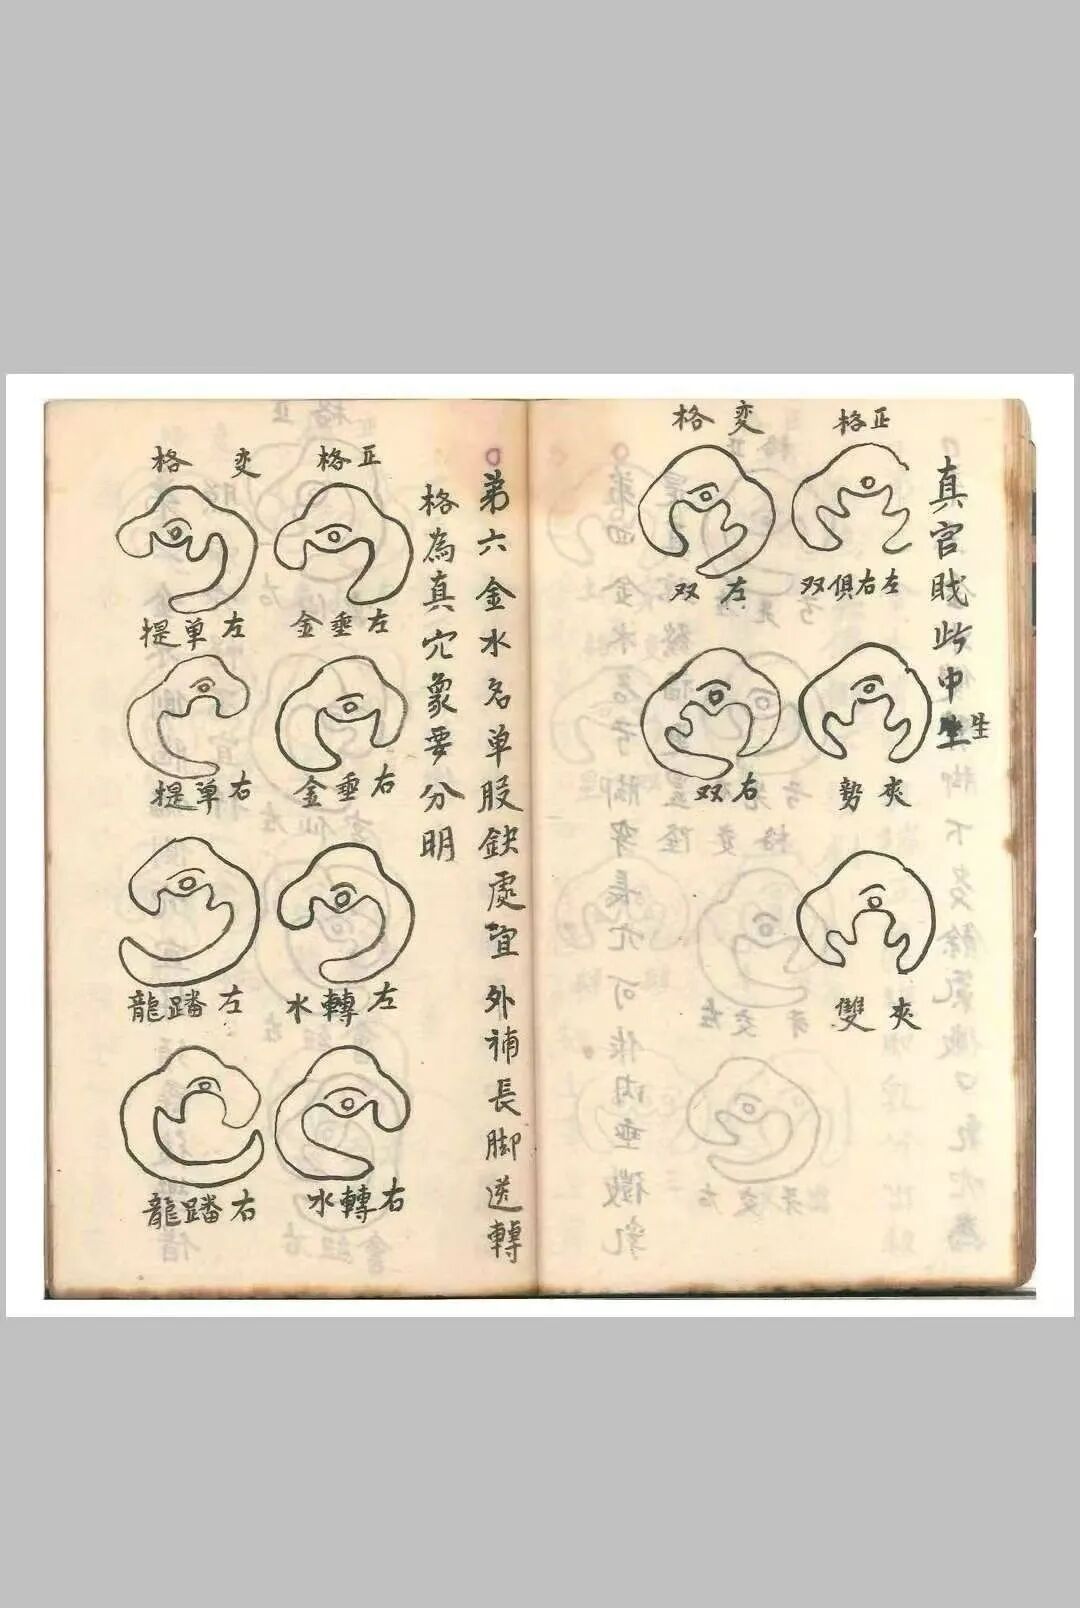 真官戝此中生生
正格
変格
左右俱双
左双
夾勢
右双
夾雙
第六金水名单股鈌處宜外補長脚送轉
格為真穴象要分明
正格
変格
左垂金
左单提
右垂金
右单提
左轉水
左蹯龍
右轉水
右蹯龍